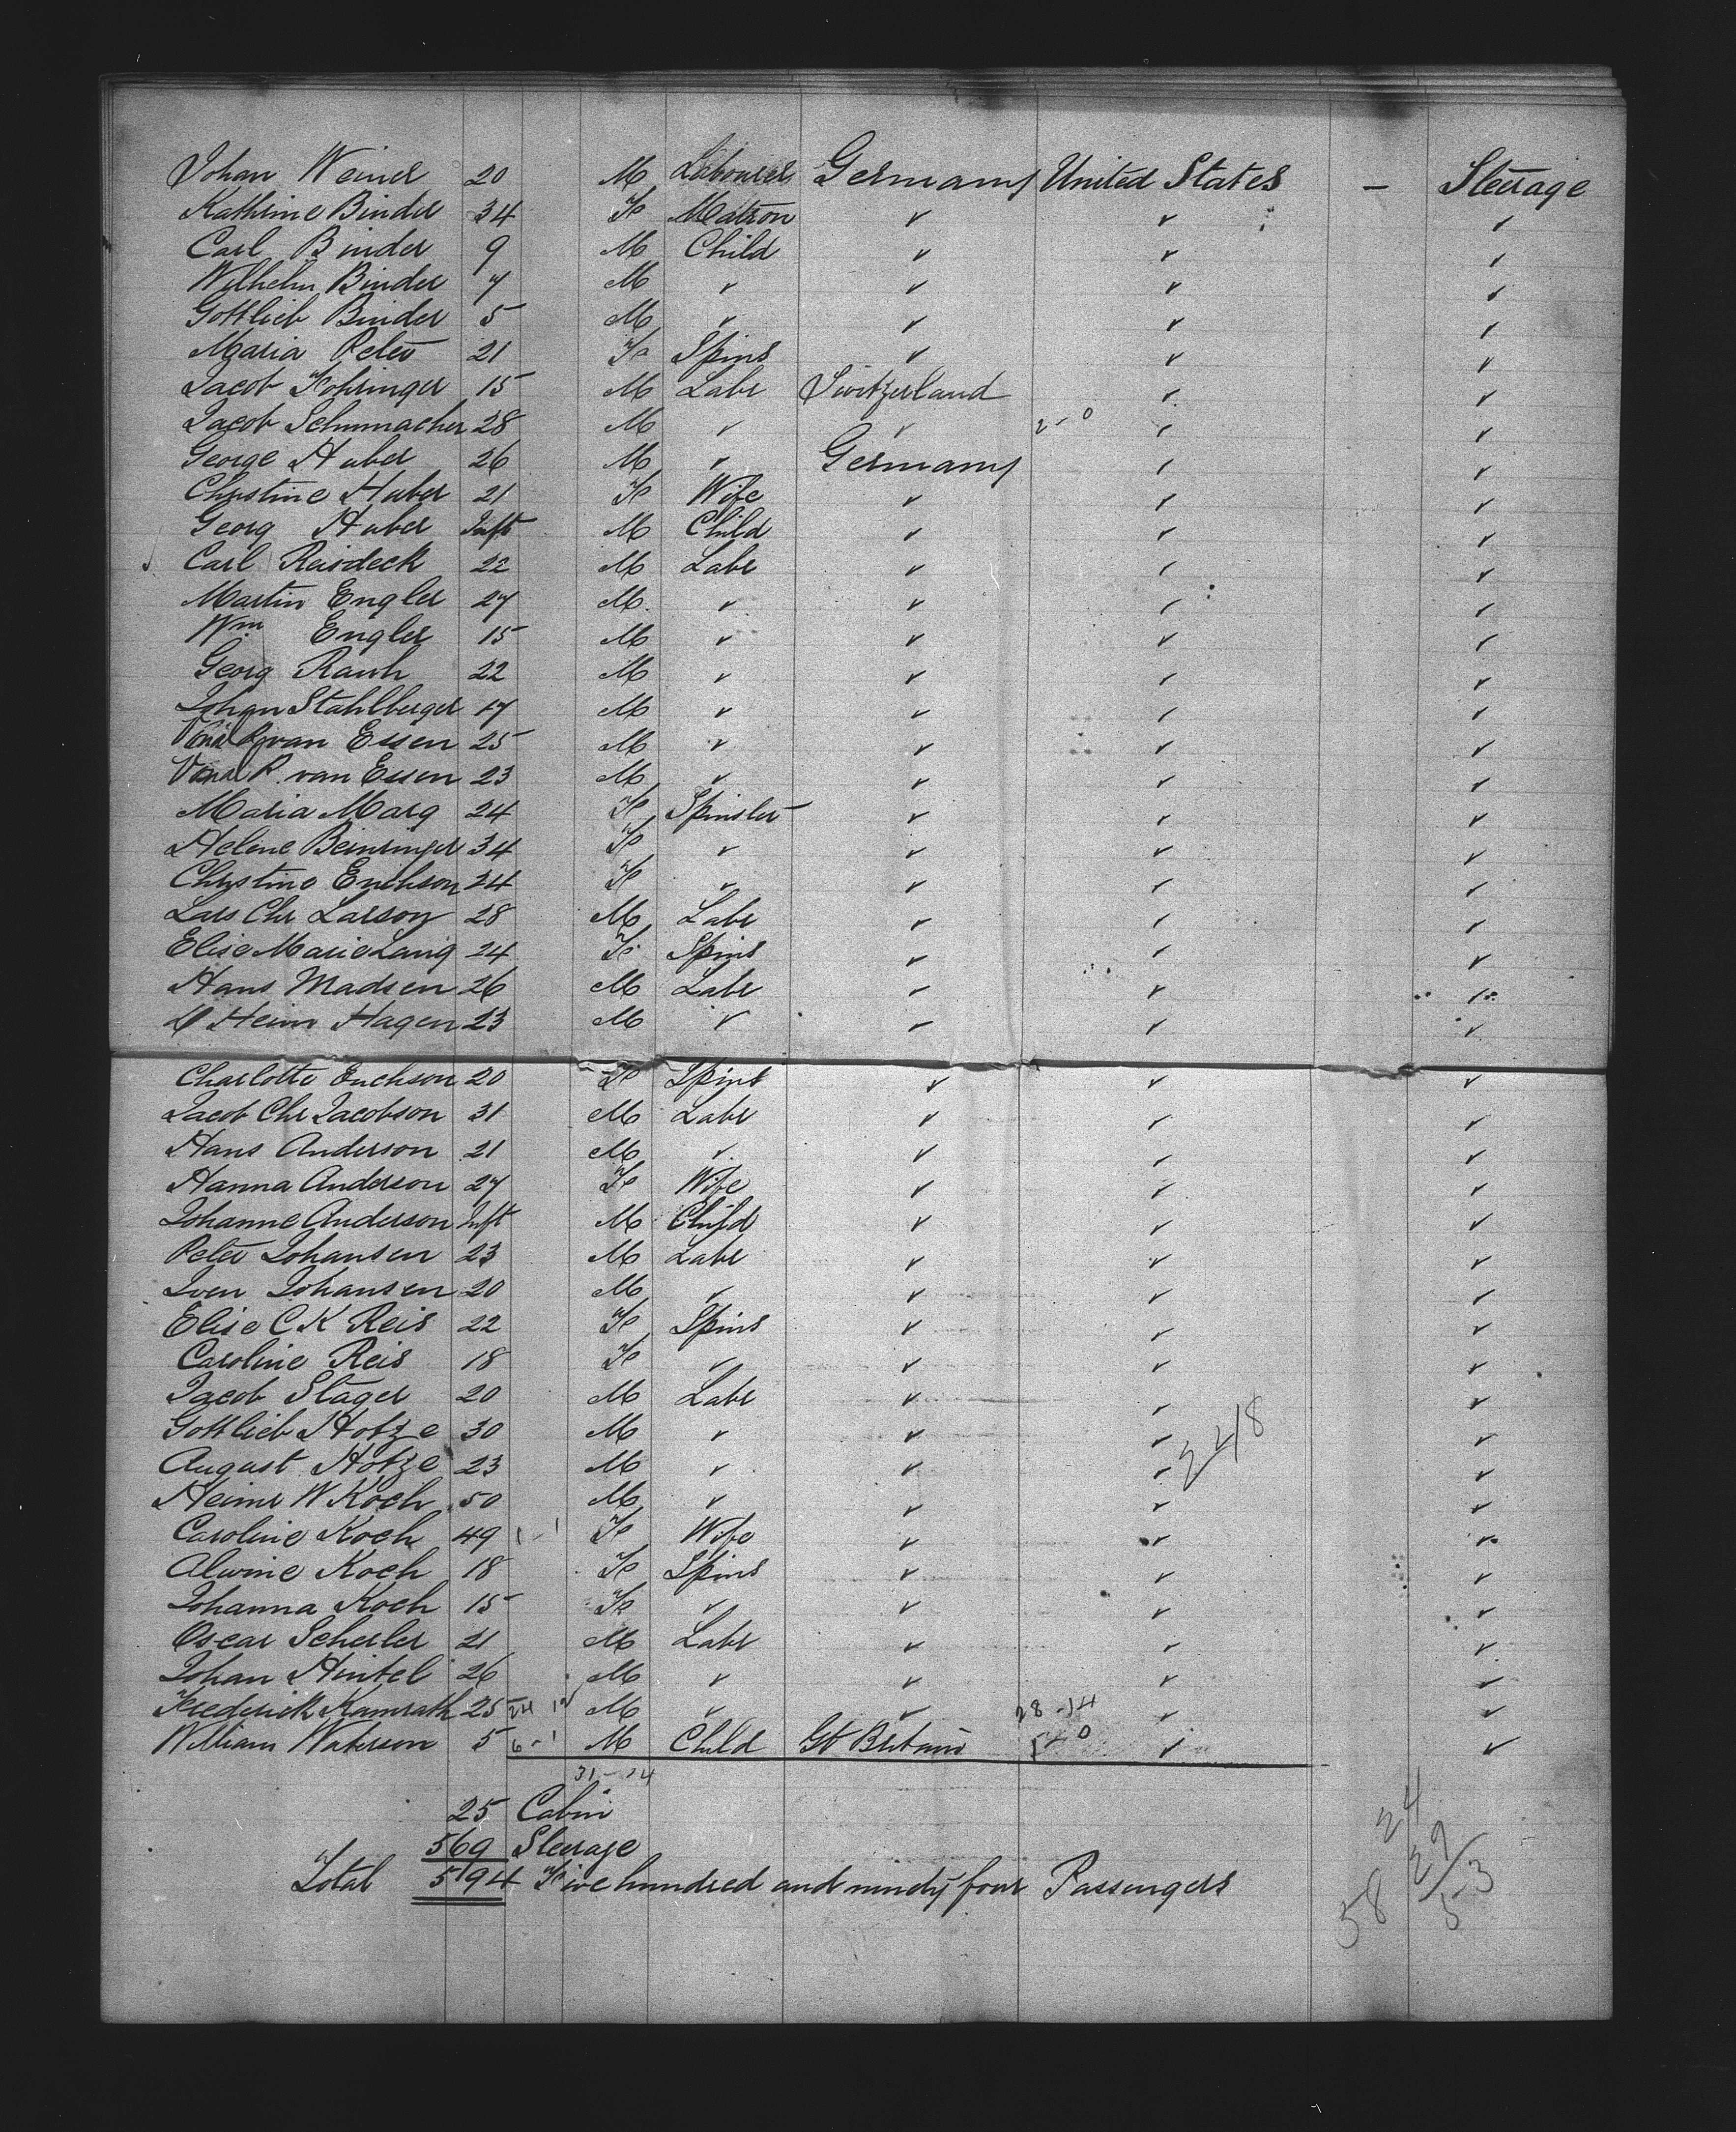 Johan Weiner 20 M Labourer Germany United States - Steerage
Kathrine Binder 34 Fe Matron ✓ ✓ ✓
Carl Binder 9 M Child ✓ ✓ ✓
Wilhelm Binder 7 M ✓ ✓ ✓ ✓
Gottlieb Binder 5 M ✓ ✓ ✓ ✓
Maria Peter 21 Fe Spins ✓ ✓ ✓
Jacob Fohringer 15 M Labr Switzerland ✓ ✓
Jacob Schumacher 28 M ✓ ✓ 2-0 ✓ ✓
George Huber 26 M ✓ Germany ✓ ✓
Christine Huber 21 Fe Wife ✓ ✓ ✓
Georg Huber Inft M Child ✓ ✓ ✓
Carl Reisdeck 22 M Labr ✓ ✓ ✓
Martin Engler 27 M ✓ ✓ ✓ ✓
Wm Engler 15 M ✓ ✓ ✓ ✓
Georg Rauh 22 M ✓ ✓ ✓ ✓
Johan Stahlberger 17 M ✓ ✓ ✓ ✓
van Essen 25 M ✓ ✓ ✓ ✓
P. van Essen 23 M ✓ ✓ ✓ ✓
Maria Marg 24 Fe Spinster ✓ ✓ ✓
Helene Beininger 34 Fe ✓ ✓ ✓ ✓
Christine Erichson 24 Fe ✓ ✓ ✓ ✓
Lars Chr Larson 28 M Labr ✓ ✓ ✓
Elise Marie Lanig 24 Fe Spins ✓ ✓ ✓
Hans Madsen 26 M Labr ✓ ✓ ✓
Heinr Hagen 23 M ✓ ✓ ✓ ✓
Charlotte Erichson 20 Fe Spins ✓ ✓ ✓
Jacob Chr Jacobson 31 M Labr ✓ ✓ ✓
Hans Anderson 21 M ✓ ✓ ✓ ✓
Hanna Anderson 27 Fe Wife ✓ ✓ ✓
Johanne Anderson Inft M Child ✓ ✓ ✓
Peter Johansen 23 M Labr ✓ ✓ ✓
Iven Johansen 20 M ✓ ✓ ✓ ✓
Elise C K Reis 22 Fe Spins ✓ ✓ ✓
Caroline Reis 18 Fe ✓ ✓ ✓ ✓
Jacob Stager 20 M Labr ✓ ✓ ✓
Gottlieb Hotze 30 M ✓ ✓ ✓ ✓
248
August Hotze 23 M ✓ ✓ ✓ ✓
Heinr W Koch 50 M ✓ ✓ ✓ ✓
Caroline Koch 49 1-1 Fe Wife ✓ ✓ ✓
Alwine Koch 18 Fe Spins ✓ ✓ ✓
Johanna Koch 15 Fe ✓ ✓ ✓ ✓
Oscar Scherler 21 M Labr ✓ ✓ ✓
Johan Hintel 26 M ✓ ✓ ✓ ✓
Frederick Kamrath 25 24 12 M ✓ ✓ 28-14 ✓ ✓
William Waterson 5 6-1 M Child Gt Britain ✓ ✓
31-14
25 Cabin
569 Steerage
Total 594 Five hundred and ninety four Passengers
24
29
58 53